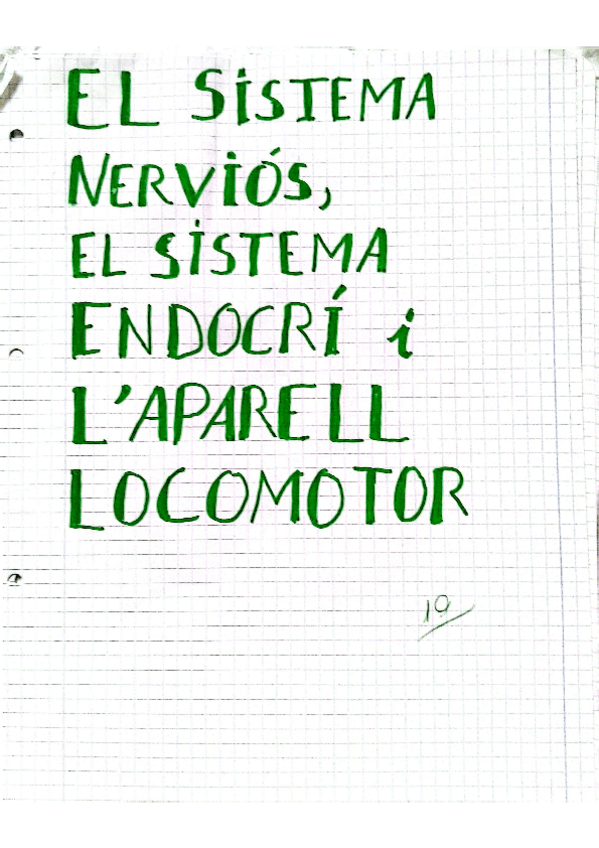 EL SiSTEMA
NERViÓS,
EL SiSTEMA
ENDOCRÍ i
L'APARELL
LOCOMOTOR
10